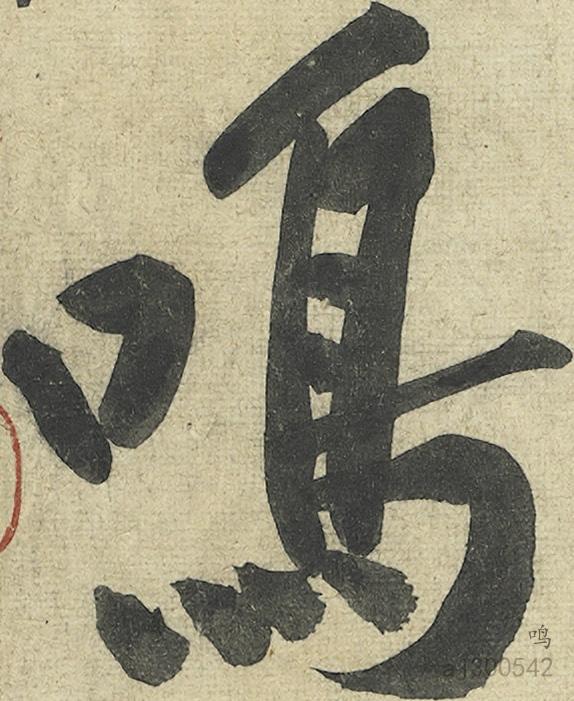 鳴
鸣
a1300542